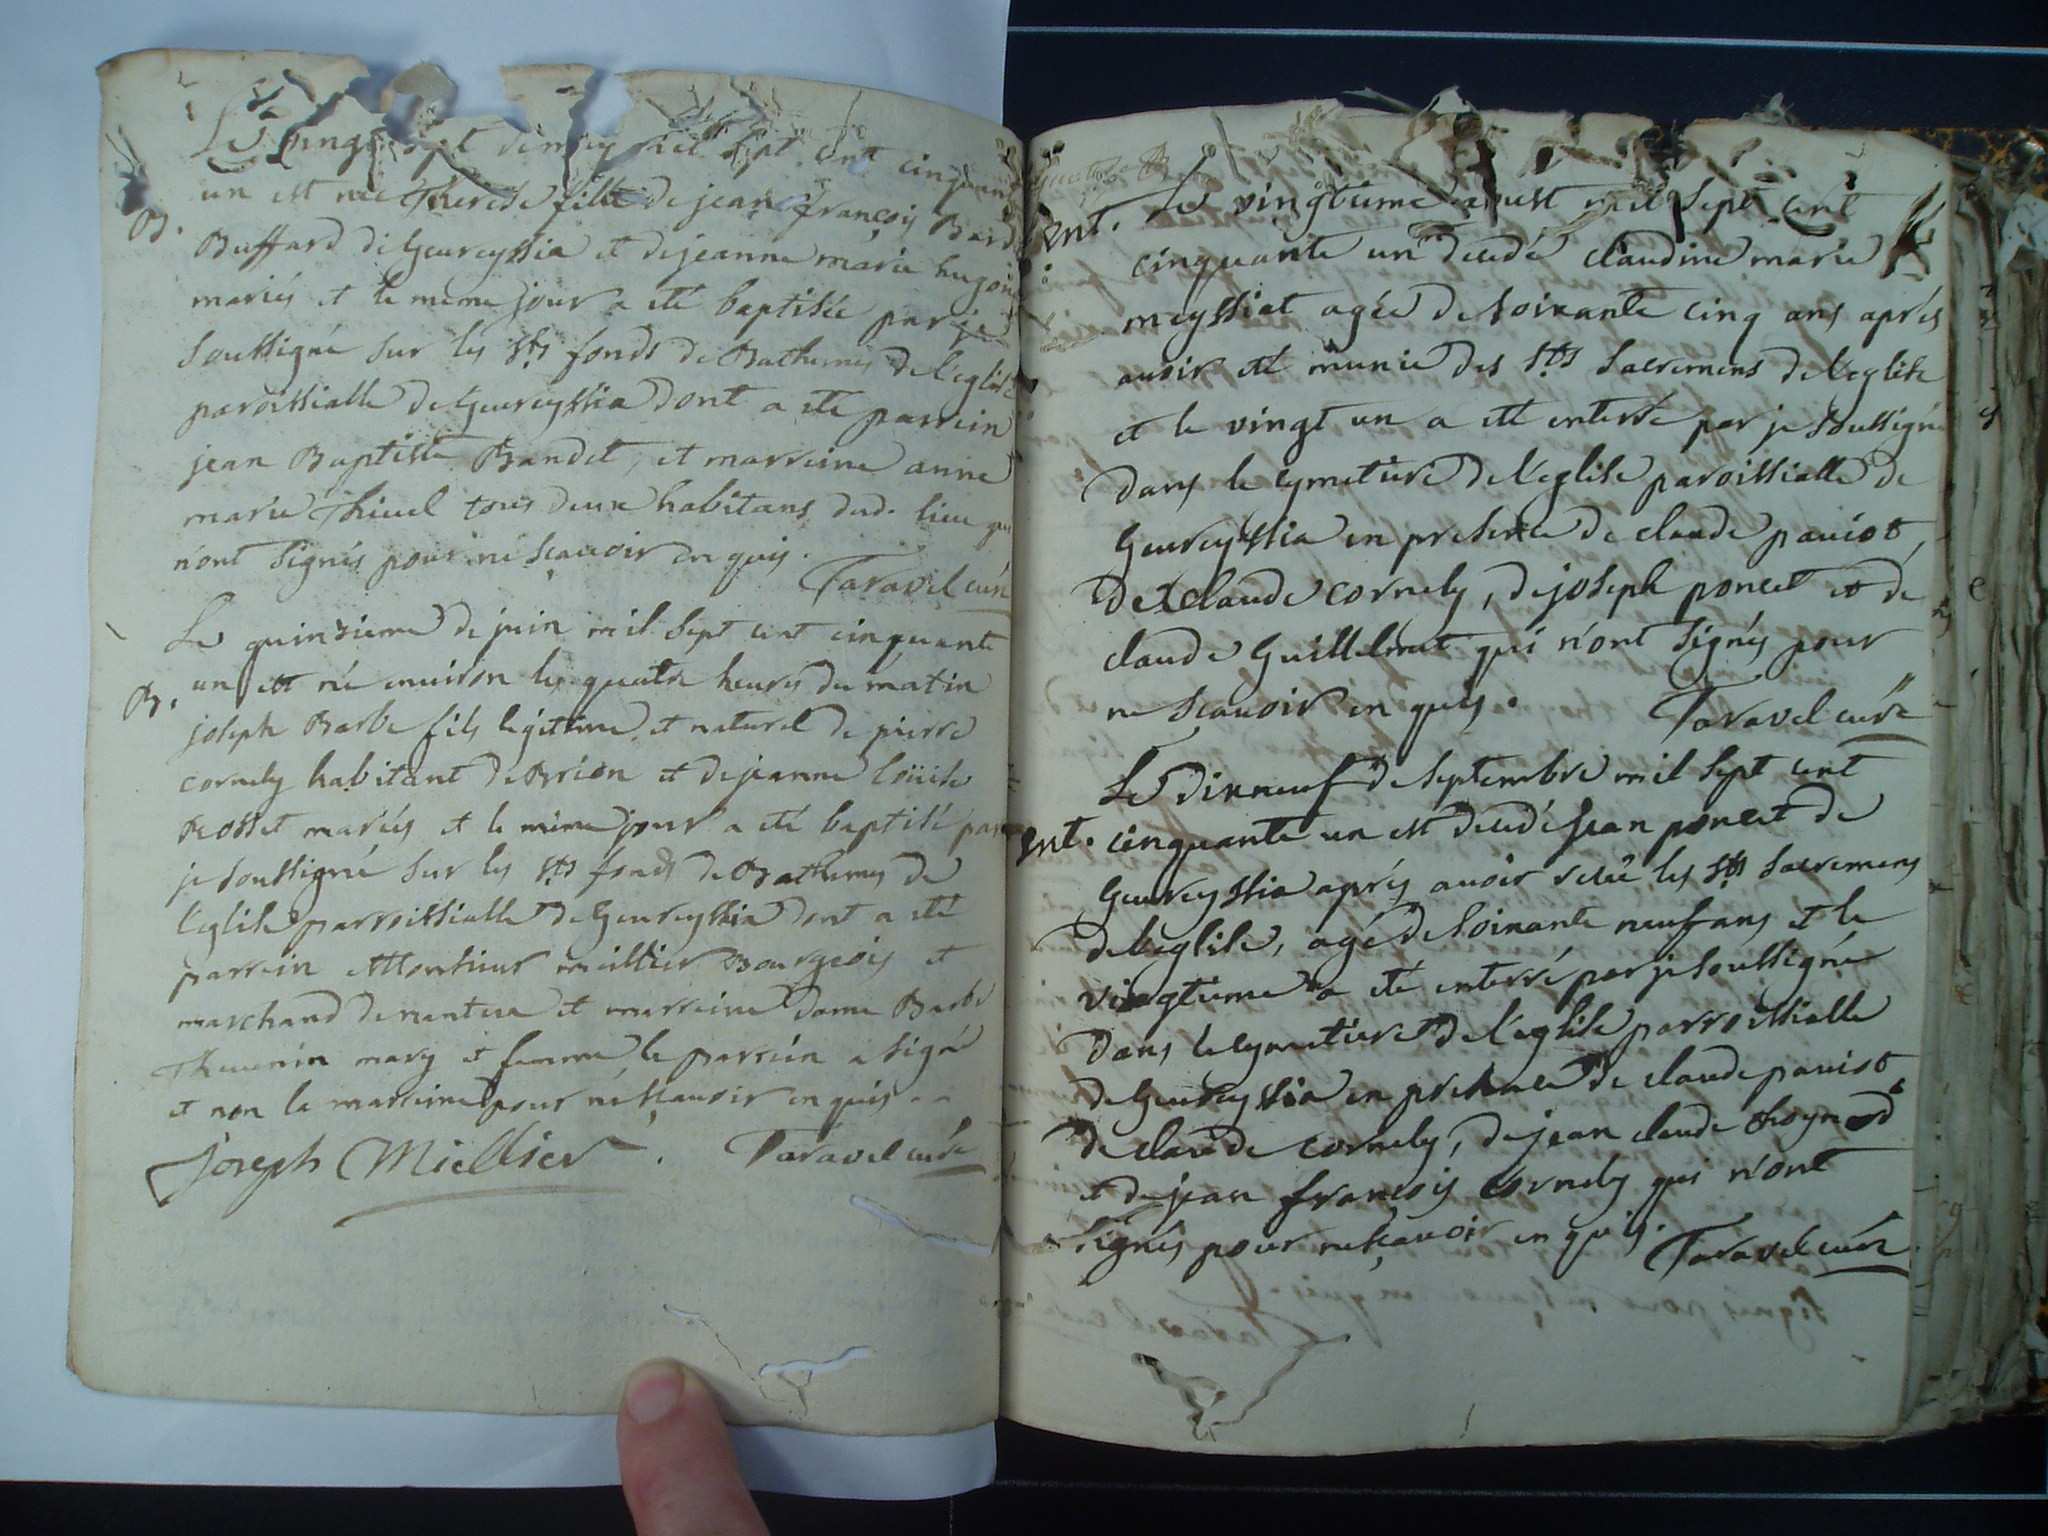 Le vingt sept de may mil sept cent cinquante
un est née Therese fille de jean françois Bard
B.
Buffard de Geureyssia et de jeanne marie hugon
mariés et le meme jour a eté baptisée par je
soussigné sur les sts fonds de Bathemes de l'eglise
paroissialle de Geureyssia dont a eté parrein
jean Baptiste Bandet, et marreine anne
marie Thieuel tous deux habitans dud. lieu qui
n'ont signés pour ne scavoir en quis.
Taravel curé
Le quinzieme de juin mil sept cent cinquante
un est né enuiron les quatre heures du matin
B.
joseph Barbe fils legitime et naturel de pierre
cornely habitant de Brion et de jeanne loüise
Rosset mariés et le mème jour a eté baptisé par
je soussigné sur les sts fonds de Bathemes de
l'eglise parroissialle de Geureyssia dont a eté
parrein Monsieur miellier Bourgeois et
marchand de nantua et marreine dame Barbe
Theuenin mary et femme, le parrein a signé
et non la marreine pour ne scauoir en quis..
Joseph Miellier. Taravel curé
Le vingtieme aoust mil sept cent
Ent.
cinquante un decedé claudine marie
meyssiat agée de soixante cinq ans après
auoir eté munie des sts sacremens de l'eglise
et le vingt un a eté enterrée par je soussigné
dans le cymetiere de l'eglise paroissialle de
Geureyssia en presence de claude pauiot,
de claude cornely, de joseph poncet et de
claude Guillelmet qui n'ont signés pour
ne scauoir en quis.
Taravel curé
Le dixneuf de septembre mil sept cent
Ent. cinquante un est decedé jean poncet de
Geureyssia après auoir recüe les sts sacremens
de l'eglise, agé de soixante neuf ans et le
vingtieme a eté enterré par je soussigné
dans le cymetiere de l'eglise parroissialle
de Geureyssia en presence de claude pauiot
de claude cornely, de jean claude thoynard
et de jean françois cornely qui n'ont
signés pour ne scauoir en quis.
Taravel curé